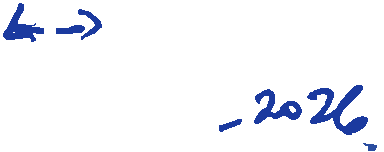 - 2026